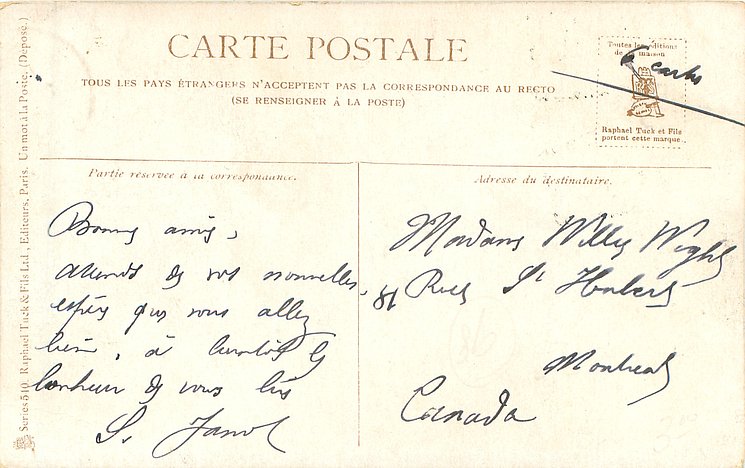 CARTE POSTALE
TOUS LES PAYS ÉTRANGERS N'ACCEPTENT PAS LA CORRESPONDANCE AU RECTO
(SE RENSEIGNER À LA POSTE)
Toutes les éditions
de la maison
6 cartes
Raphael Tuck et Fils
portent cette marque.
Series 510. Raphael Tuck & Fils Ltd., Editeurs, Paris. Un mot à la Poste. (Déposé.)
Partie réservée à la correspondance.
Bonnes amies,
attends de vos nouvelles,
espère que vous allez
bien, à bientôt le
bonheur de vous lire
Adresse du destinataire.
Madame Willy Wight
81 Rue St Hubert
Montreal
Canada